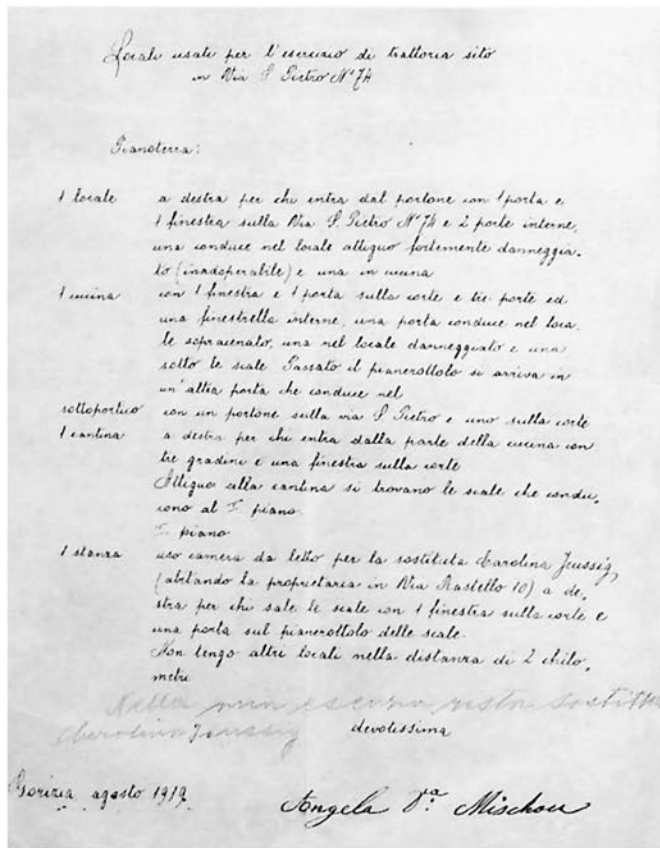 Locali usati per l'esercizio di trattoria sito
in Via S. Pietro N° 74
Pianoterra:
1 locale a destra per chi entra dal portone con 1 porta e
1 finestra sulla Via S. Pietro N° 74 e 2 porte interne,
una conduce nel locale attiguo fortemente danneggia-
to (inadoperabile) e una in cucina
1 cucina con 1 finestra e 1 porta sulla corte e tre porte ed
una finestrella interne, una porta conduce nel loca-
le sopracenato, una nel locale danneggiato e una
sotto le scale Passato il pianerottolo si arriva in
un'altra porta che conduce nel
sottoportico con un portone sulla via S. Pietro e uno sulla corte
1 cantina a destra per chi entra dalla parte della cucina con
tre gradini e una finestra sulla corte
Attiguo alla cantina si trovano le scale che condu-
cono al I. piano.
I. piano
1 stanza uso camera da letto per la sostituta Carolina Jussig,
(abitando la proprietaria in Via Rastello 10) a de-
stra per chi sale le scale con 1 finestra sulla corte e
una porta sul pianerottolo delle scale.
Non tengo altri locali nella distanza di 2 chilo-
metri
Nella mia resta
devotissima
Gorizia agosto 1919.
Angela Va. Mischou